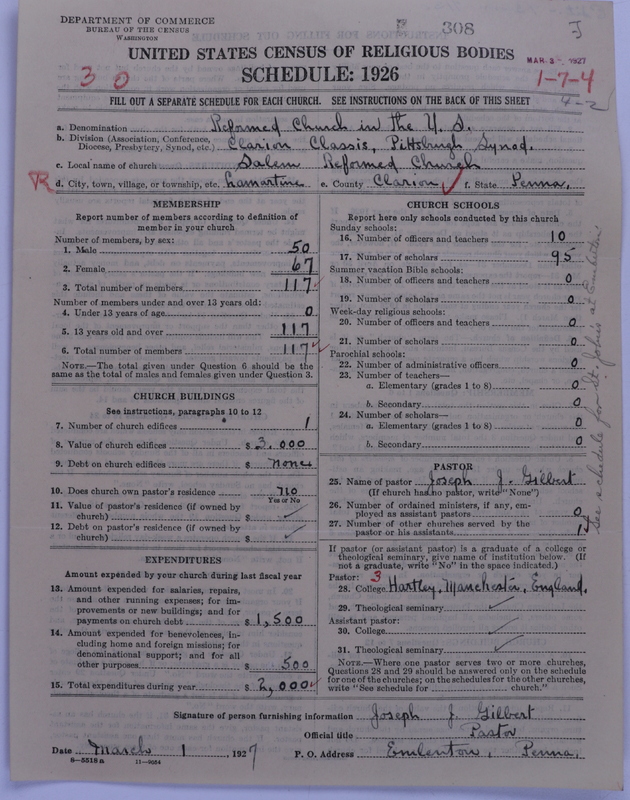 DEPARTMENT OF COMMERCE
BUREAU OF THE CENSUS
WASHINGTON
308
J
UNITED STATES CENSUS OF RELIGIOUS BODIES
MAR 3 - 1927
3 0
SCHEDULE: 1926
1-7-4
4-2
FILL OUT A SEPARATE SCHEDULE FOR EACH CHURCH. SEE INSTRUCTIONS ON THE BACK OF THIS SHEET
a. Denomination Reformed Church in the U. S.
b. Division (Association, Conference, Diocese, Presbytery, Synod, etc.) Clarion Classis, Pittsburgh Synod.
c. Local name of church Salem Reformed Church
R d. City, town, village, or township, etc. Lamartine e. County Clarion f. State Penna.
MEMBERSHIP
Report number of members according to definition of
member in your church
Number of members, by sex:
1. Male 50
2. Female 67
3. Total number of members 117
Number of members under and over 13 years old:
4. Under 13 years of age 0
5. 13 years old and over 117
6. Total number of members 117
NOTE.—The total given under Question 6 should be
same as the total of males and females given under Question 3.
CHURCH BUILDINGS
See instructions, paragraphs 10 to 12
7. Number of church edifices 1
8. Value of church edifices $ 3,000
9. Debt on church edifices $ none
10. Does church own pastor's residence no
Yes or No
11. Value of pastor's residence (if owned by
church) $ ✓
12. Debt on pastor's residence (if owned by
church) $ ✓
EXPENDITURES
Amount expended by your church during last fiscal year
13. Amount expended for salaries, repairs,
and other running expenses; for im-
provements or new buildings; and for
payments on church debt $ 1,500
14. Amount expended for benevolences, in-
cluding home and foreign missions; for
denominational support; and for all
other purposes $ 500
15. Total expenditures during year $ 2,000
CHURCH SCHOOLS
Report here only schools conducted by this church
Sunday schools:
16. Number of officers and teachers 10
17. Number of scholars 95
Summer vacation Bible schools:
18. Number of officers and teachers 0
19. Number of scholars 0
Week-day religious schools:
20. Number of officers and teachers 0
21. Number of scholars 0
Parochial schools:
22. Number of administrative officers 0
23. Number of teachers—
a. Elementary (grades 1 to 8) 0
b. Secondary 0
24. Number of scholars—
a. Elementary (grades 1 to 8) 0
b. Secondary 0
PASTOR
25. Name of pastor Joseph J. Gilbert
(If church has no pastor, write "None")
26. Number of ordained ministers, if any, em-
ployed as assistant pastors 0
27. Number of other churches served by the
pastor or his assistants 1
See schedule for St. John's at Emlenton
If pastor (or assistant pastor) is a graduate of a college or
theological seminary, give name of institution below. (If
not a graduate, write "No" in the space indicated.)
Pastor: 3
28. College Hartley, Manchester, England.
29. Theological seminary ✓
Assistant pastor:
30. College ✓
31. Theological seminary ✓
NOTE.—Where one pastor serves two or more churches,
Questions 28 and 29 should be answered only on the schedule
for one of the churches; on the schedules for the other churches,
write "See schedule for church."
Signature of person furnishing information Joseph J. Gilbert
Official title Pastor
Date March 1 1927 P. O. Address Emlenton, Penna.
8—5518 a 11—9054